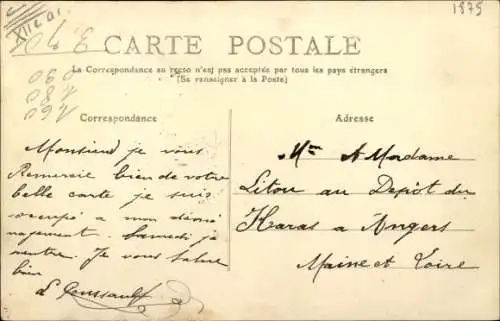 XII c 01.
1875
CARTE POSTALE
La Correspondance au recto n'est pas acceptée par tous les pays étrangers
(Se renseigner à la Poste)
Correspondance
Adresse
Monsieur je vous
Remercie bien de votre
belle carte je suis
occupé a mon démé
nagement. Samedi je
rentre. Je vous salue
bien
L Goussault
Mr A Madame
Litou au Depôt du
Haras a Angers
Maine et Loire